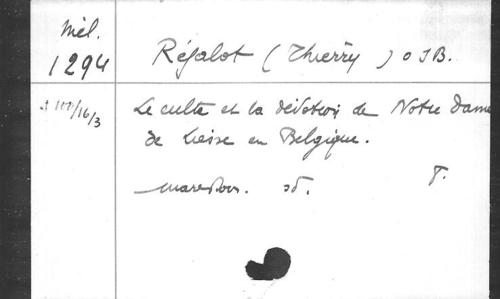 Mél.
1294
Réjalot (Thierry) OSB.
Le culte et la dévotion de Notre Dame
de Liesse en Belgique.
Maredsous. sd. T.